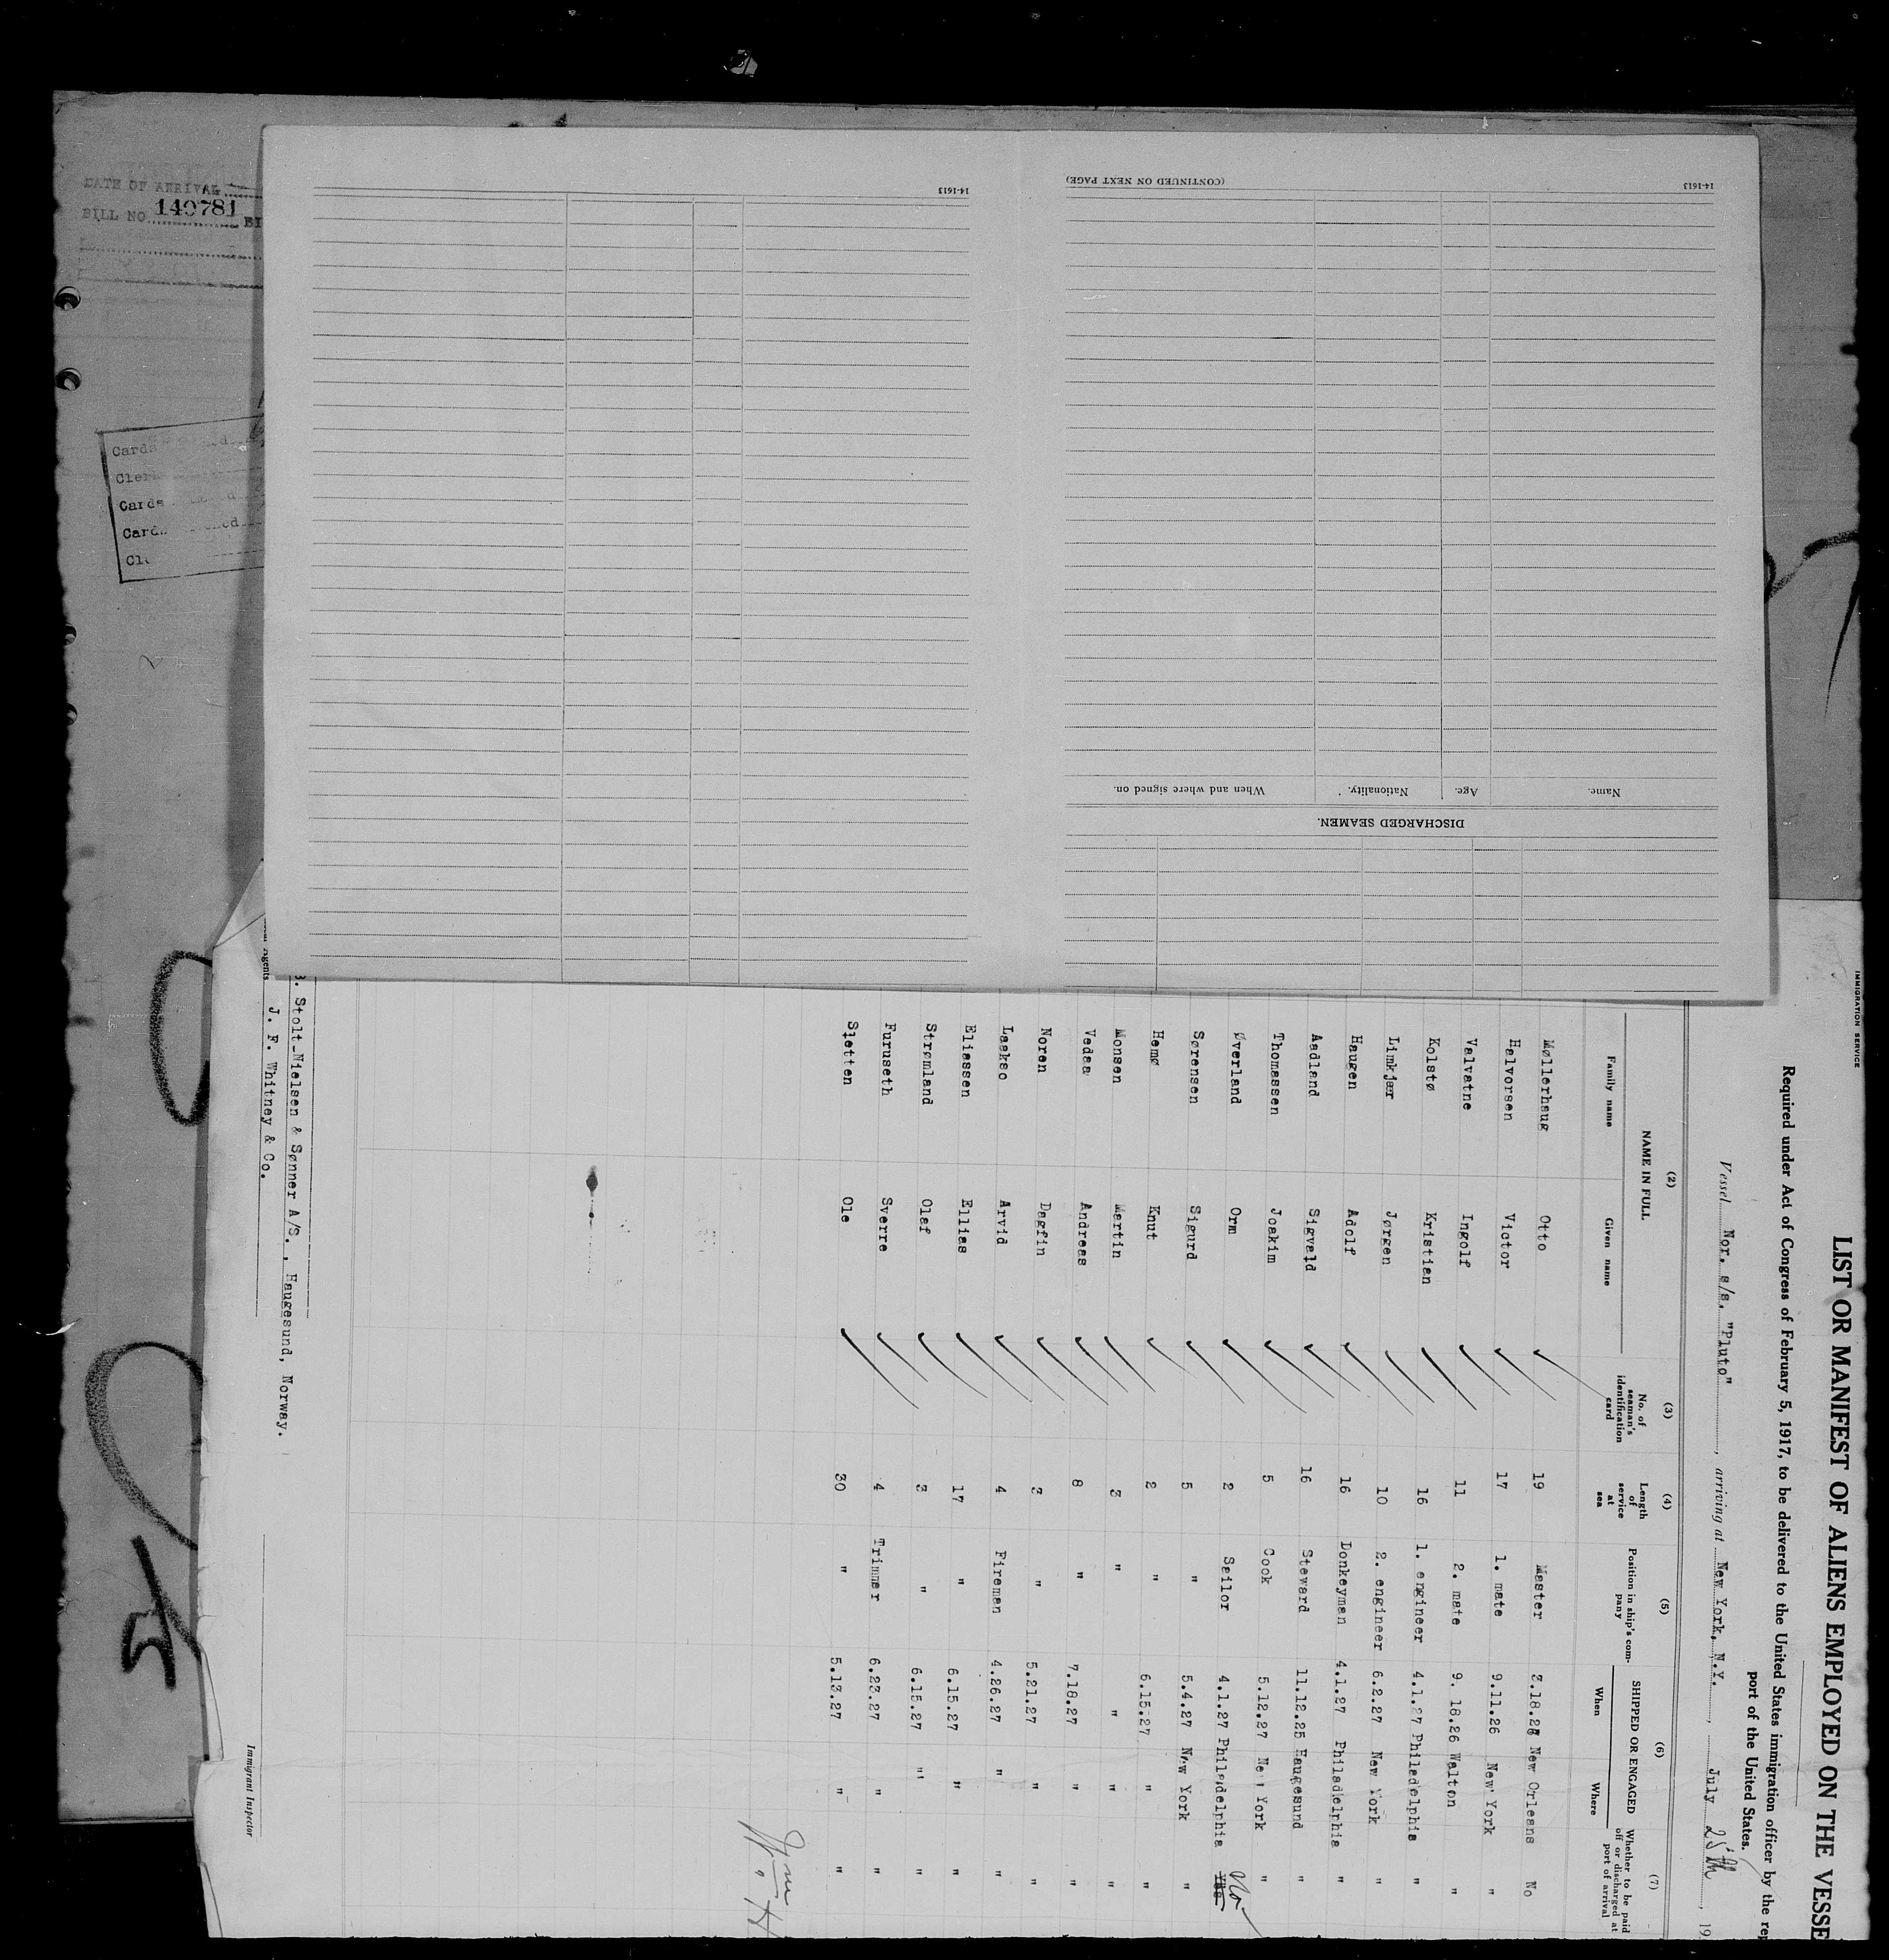 DATE OF ARRIVAL
BILL NO. 140781
Cards
Clerk
Cards
Cards
14-1613
14-1613
(CONTINUED ON NEXT PAGE)
Name. Age. Nationality. When and where signed on.
DISCHARGED SEAMEN.
IMMIGRATION SERVICE
LIST OR MANIFEST OF ALIENS EMPLOYED ON THE VESSE
Required under Act of Congress of February 5, 1917, to be delivered to the United States immigration officer by the rep
port of the United States.
Vessel Nor. s/s. "Pluto", arriving at New York, N.Y., July 25th, 19
(2) (3) (4) (5) (6) (7)
NAME IN FULL
Family name Given name
No. of seaman's identification card
Length of service at sea
Position in ship's company
SHIPPED OR ENGAGED
When Where
Whether to be paid off or discharged at port of arrival
Møllerhaug Otto 19 Master New Orleans No
Halvorsen Victor 17 1. mate 9.11.26 New York "
Valvatne Ingolf 11 2. mate 9. 18.26 Walton "
Kolstø Kristian 16 1. engineer 4.1.27 Philadelphia "
Limkjær Jørgen 10 2. engineer 6.2.27 New York "
Haugen Adolf 16 Donkeyman 4.1.27 Philadelphia "
Aadland Sigvald 16 Steward 11.12.25 Haugesund "
Thomassen Joakim 5 Cook 5.12.27 New York "
Øverland Orm 2 Sailor 4.1.27 Philadelphia Yes No
Sørensen Sigurd 5 " 5.4.27 New York "
Hemø Knut 2 " 6.15.27 " "
Monsen Martin 3 " " " "
Vedaa Andreas 8 " 7.18.27 " "
Noren Dagfin 3 " 5.21.27 " "
Laakso Arvid 4 Fireman 4.26.27 " "
Eliassen Ellias 17 " 6.15.27 " "
Strømland Olaf 3 " 6.15.27 " "
Furuseth Sverre 4 Trimmer 6.23.27 " "
Sletten Ole 30 " 5.13.27 " "
B. Stolt-Nielsen & Sønner A/S. , Haugesund, Norway.
Agents J. F. Whitney & Co.
Immigrant Inspector